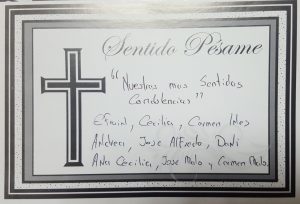 Sentido Pésame
"Nuestras mas Sentidas
Condolencias"
Efrain, Cecilia, Carmen Ines
Andrea, Jose Alfredo, Dani
Ana Cecilia, Jose Malo y Carmen Malo.